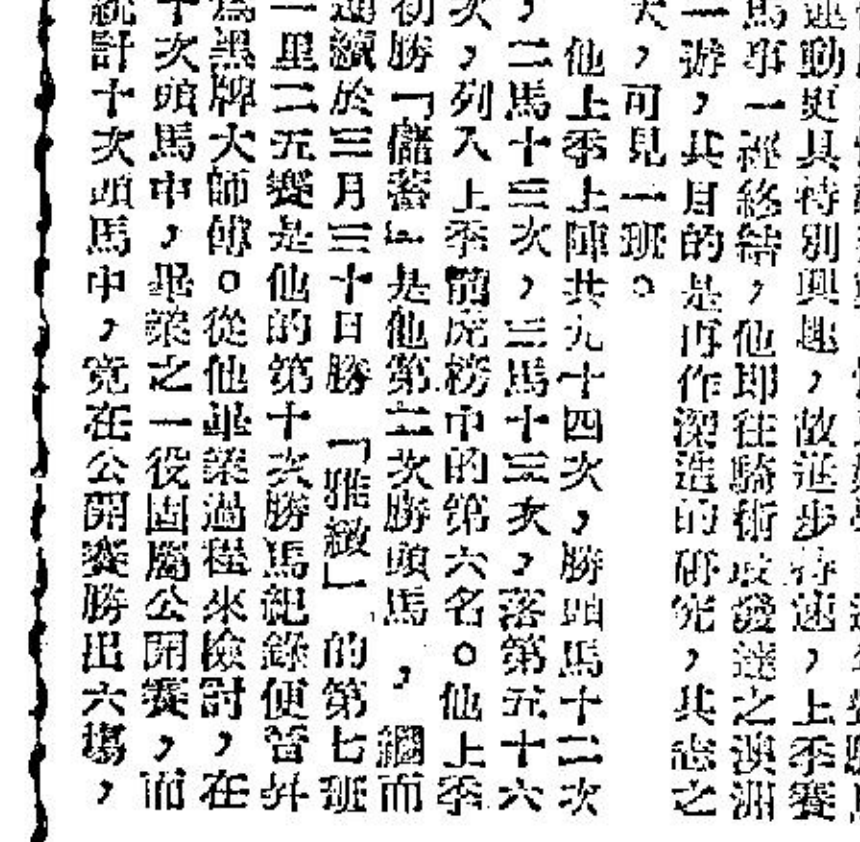 運動更具特別興趣，故進步特速，上季賽
馬事一經終結，他即往騎術最發達之澳洲
一游，其目的是再作深造的研究，其志之
大，可見一班。
他上季上陣共九十四次，勝頭馬十二次
，二馬十三次，三馬十三次，落第五十六
次，列入上季龍虎榜中的第六名。他上季
初勝「儲蓄」是他第二次勝頭馬，繼而
連續於三月三十日勝「雅緻」的第七班
一里二五賽是他的第十次勝馬紀錄便晉升
為黑牌大師傅。從他畢業過程來檢討，在
十次頭馬中，畢業之一役固屬公開賽，而
統計十次頭馬中，竟在公開賽勝出六場，